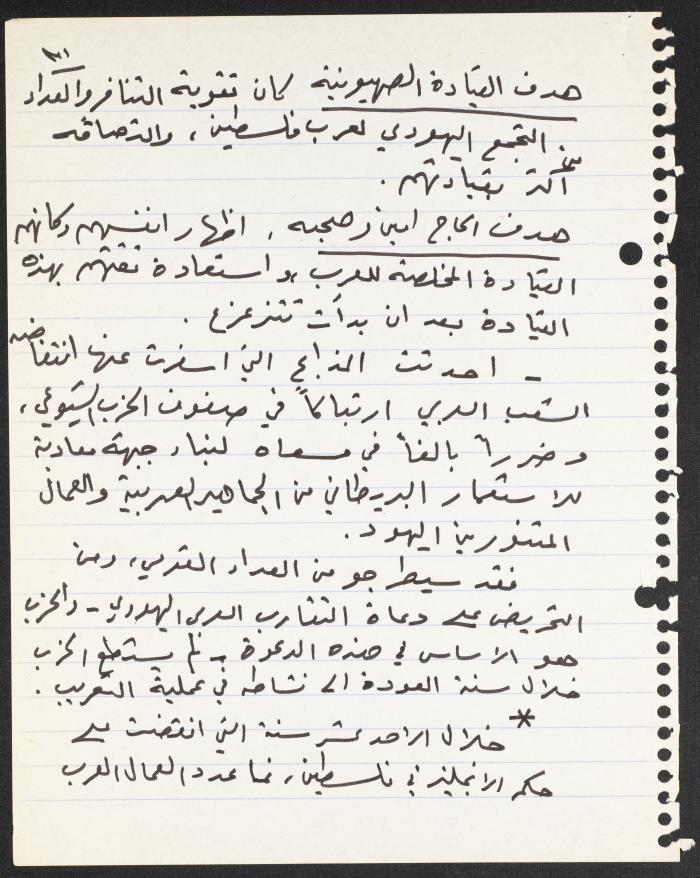 هدف القيادة الصهيونية كان تقوية التنافر والعداء
من التجمع اليهودي لعرب فلسطين، والتصاقه
أكثر بقيادتهم.
هدف الحاج امين وصحبه، اظهار انفسهم وكانهم
القيادة المخلصة للعرب، واستعادة ثقتهم بهذه
القيادة بعد ان بدأت تتزعزع.
- احدثت المذابح التي اسفرت عنها انتفاضه
الشعب العربي ارتباكاً في صفوف الحزب الشيوعي،
وضرراً بالغاً في مسعاه لبناء جبهة معادية
للاستعمار البريطاني من الجماهير العربية والعمال
المتنورين اليهود.
فقد سيطر جو من العداء القومي، ومن
التحريض على دعاة التقارب العربي اليهودي - والحزب
هو الاساس في هذه الدعوة - لم يستطع الحزب
خلال سنة العودة الى نشاطه في عملية التعريب.
* خلال الاحد عشر سنة التي انقضت على
حكم الانجليز في فلسطين، نما عدد العمال العرب